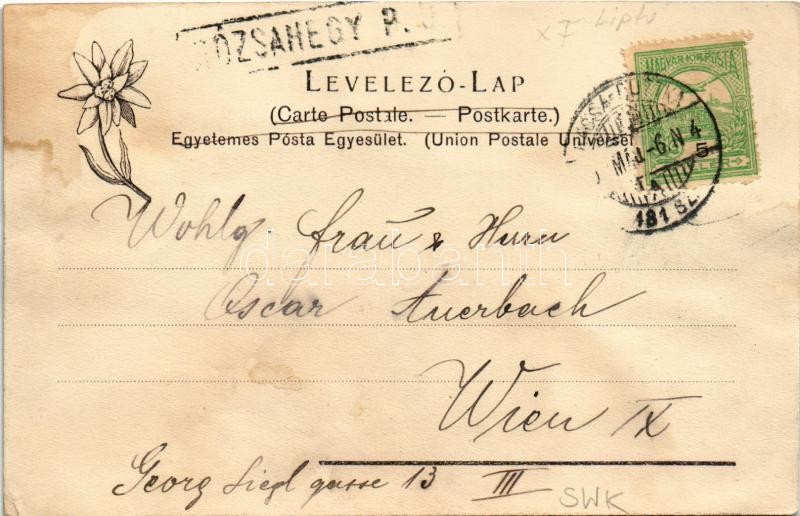 RÓZSAHEGY P.U
x7 Liptv
LEVELEZŐ-LAP
MAGYAR KIR. POSTA
(Carte Postale. — Postkarte.)
Egyetemes Pósta Egyesület. (Union Postale Universel
MÁJ-6.N 4
5
181 SZ.
Wohlg Frau & Herrn
darabanth
Oscar Auerbach
Wien IX
Georg Siegl gasse 13 III
SWK